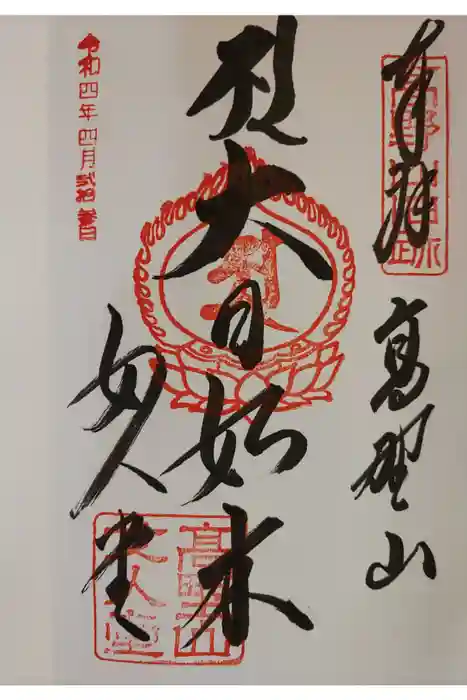 奉拝
高野山
大日如来
女人堂
令和四年四月弐拾
高野山
女人堂